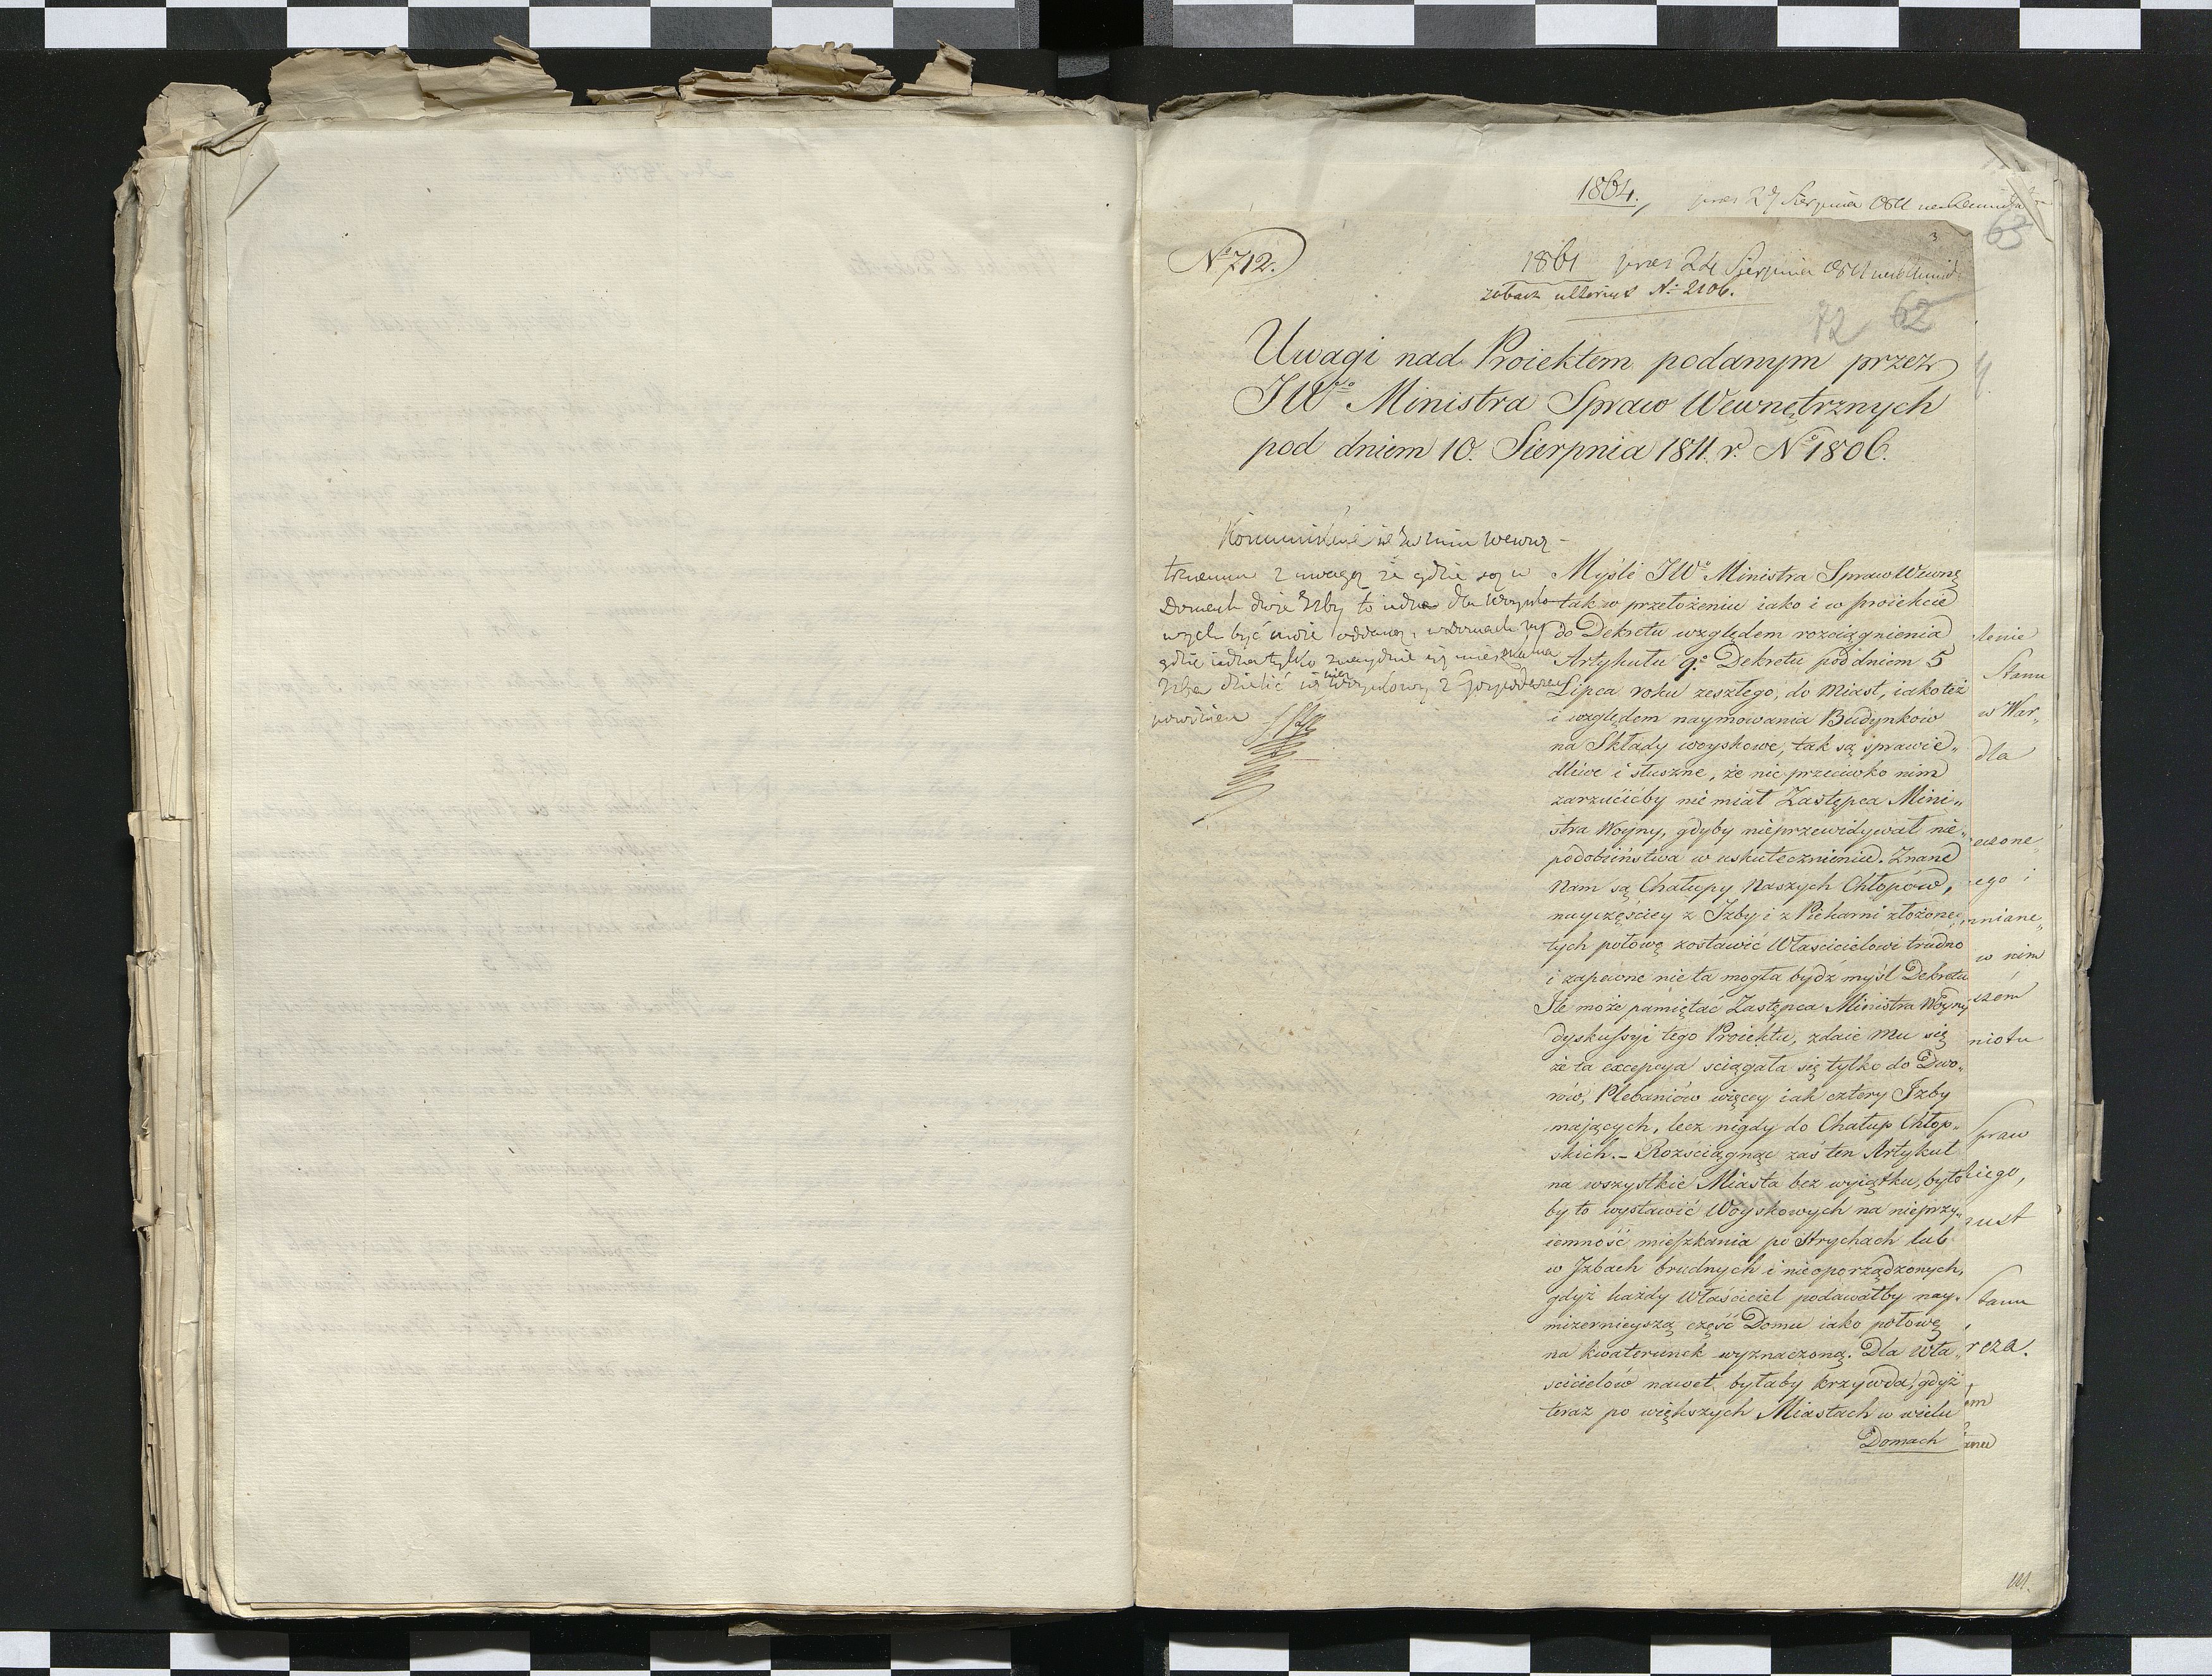 1864.
praes 27 Sierpnia
63
3
N° 712.
1861 praes 24 Sierpnia
zobacz ulterius N° 2106.
72 62
Uwagi nad Proiektem podanym przez
JWo Ministra Spraw Wewnętrznych
pod dniem 10. Sierpnia 1811. r. N° 1806.
trznemu z uwagą że gdzie są w
Domach dwie Izby to iedna dla Woysko
wych być może oddaną, w domach zaś
gdzie iedna tylko znayduie się mieszkalna
Izba dzielić się nią Woyskowy z Gospodarzem
powinien
Myśli JWo Ministra Spraw Wewnę
tak w przełożeniu iako i w proiekcie
do Dekretu względem rozciągnienia
Artykułu 9.o Dekretu pod dniem 5
Lipca roku zeszłego, do Miast, iako też
i względem naymowania Budynków
na Składy woyskowe, tak są sprawie„
dliwe i słuszne, że nic przeciwko nim
zarzucićby nie miał Zastępca Mini„
stra Woyny, gdyby nieprzewidywał nie„
podobieństwa w uskutecznieniu. Znane
Nam są Chałupy Naszych Chłopów,
nayczęściey z Izby i z Piekarni złożone;
tych połowę zostawić Właścicielowi trudno
i zapewne nie ta mogła bydź myśl Dekretu
Ile może pamiętać Zastępca Ministra Woyny
dyskussyi tego Proiektu, zdaie Mu się
że ta excepcya ściągała się tylko do Dwo„
rów, Plebaniów więcey iak cztery Izby
mających, lecz nigdy do Chałup Chłop„
skich. – Rozściągnąć zaś ten Artykuł
na wszystkie Miasta bez wyiątku, było
by to wystawić Woyskowych na nieprzy„
iemność mieszkania po Strychach lub
w Izbach brudnych i nieoporządzonych,
gdyż każdy Właściciel podawałby nay„
mizernieyszą część Domu iako połowę
na kwaterunek wyznaczoną. Dla Wła„
ścicielów nawet byłaby krzywda, gdyż
teraz po większych Miastach w wielu
Domach
Stanu
w War„
dla
ego i
w nim
niotu
praw
kiego,
gust
rcza.